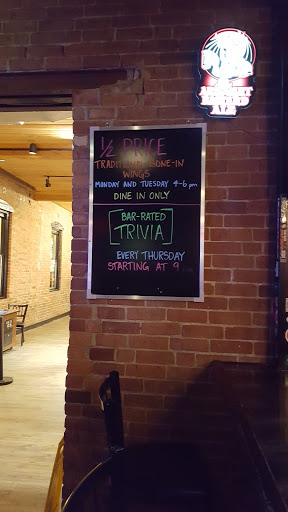 1/2 PRICE
TRADITIONAL BONE-IN
WINGS
MONDAY AND TUESDAY 4-6 pm
DINE IN ONLY
BAR-RATED
TRIVIA
EVERY THURSDAY
STARTING AT 9